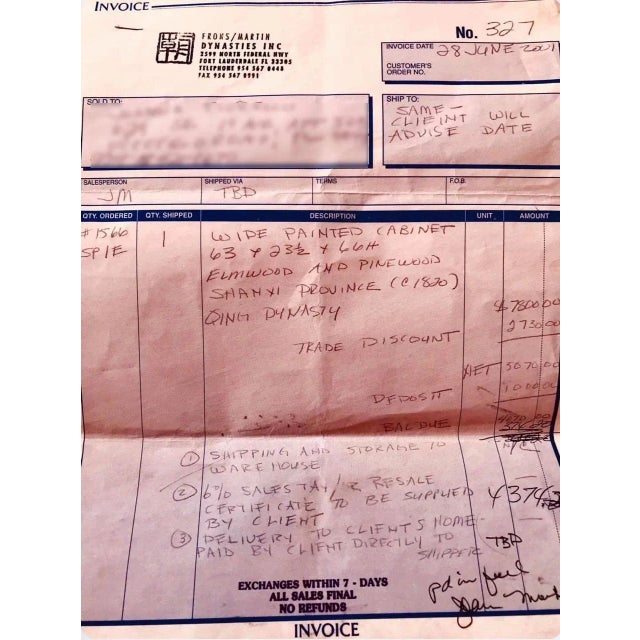 INVOICE
FROKS/MARTIN
DYNASTIES INC
2599 NORTH FEDERAL HWY
FORT LAUDERDALE FL 33305
TELEPHONE 954 567 0448
FAX 954 567 0991
No. 327
INVOICE DATE 28 JUNE 2001
CUSTOMER'S
ORDER NO.
SOLD TO:
SHIP TO:
SAME -
CLIEINT WILL
ADVISE DATE
SALESPERSON SHIPPED VIA TERMS F.O.B.
JM TBD
QTY. ORDERED QTY. SHIPPED DESCRIPTION UNIT AMOUNT
#1566 1 WIDE PAINTED CABINET
SPIE 63 x 23½ x 66H
ELMWOOD AND PINEWOOD
SHANXI PROVINCE (C1820)
QING DYNASTY $7800.00
2730.00
TRADE DISCOUNT
NET 5070.00
DEPOSIT 1000.00
BAL DUE
① SHIPPING AND STORAGE TO N/C
WAREHOUSE
② 6% SALES TAX / R RESALE
CERTIFICATE TO BE SUPPLIED
BY CLIENT
③ DELIVERY TO CLIENTS HOME -
PAID BY CLIENT DIRECTLY TO TBD
SHIPPER
pd in full
EXCHANGES WITHIN 7 - DAYS
ALL SALES FINAL
NO REFUNDS
INVOICE